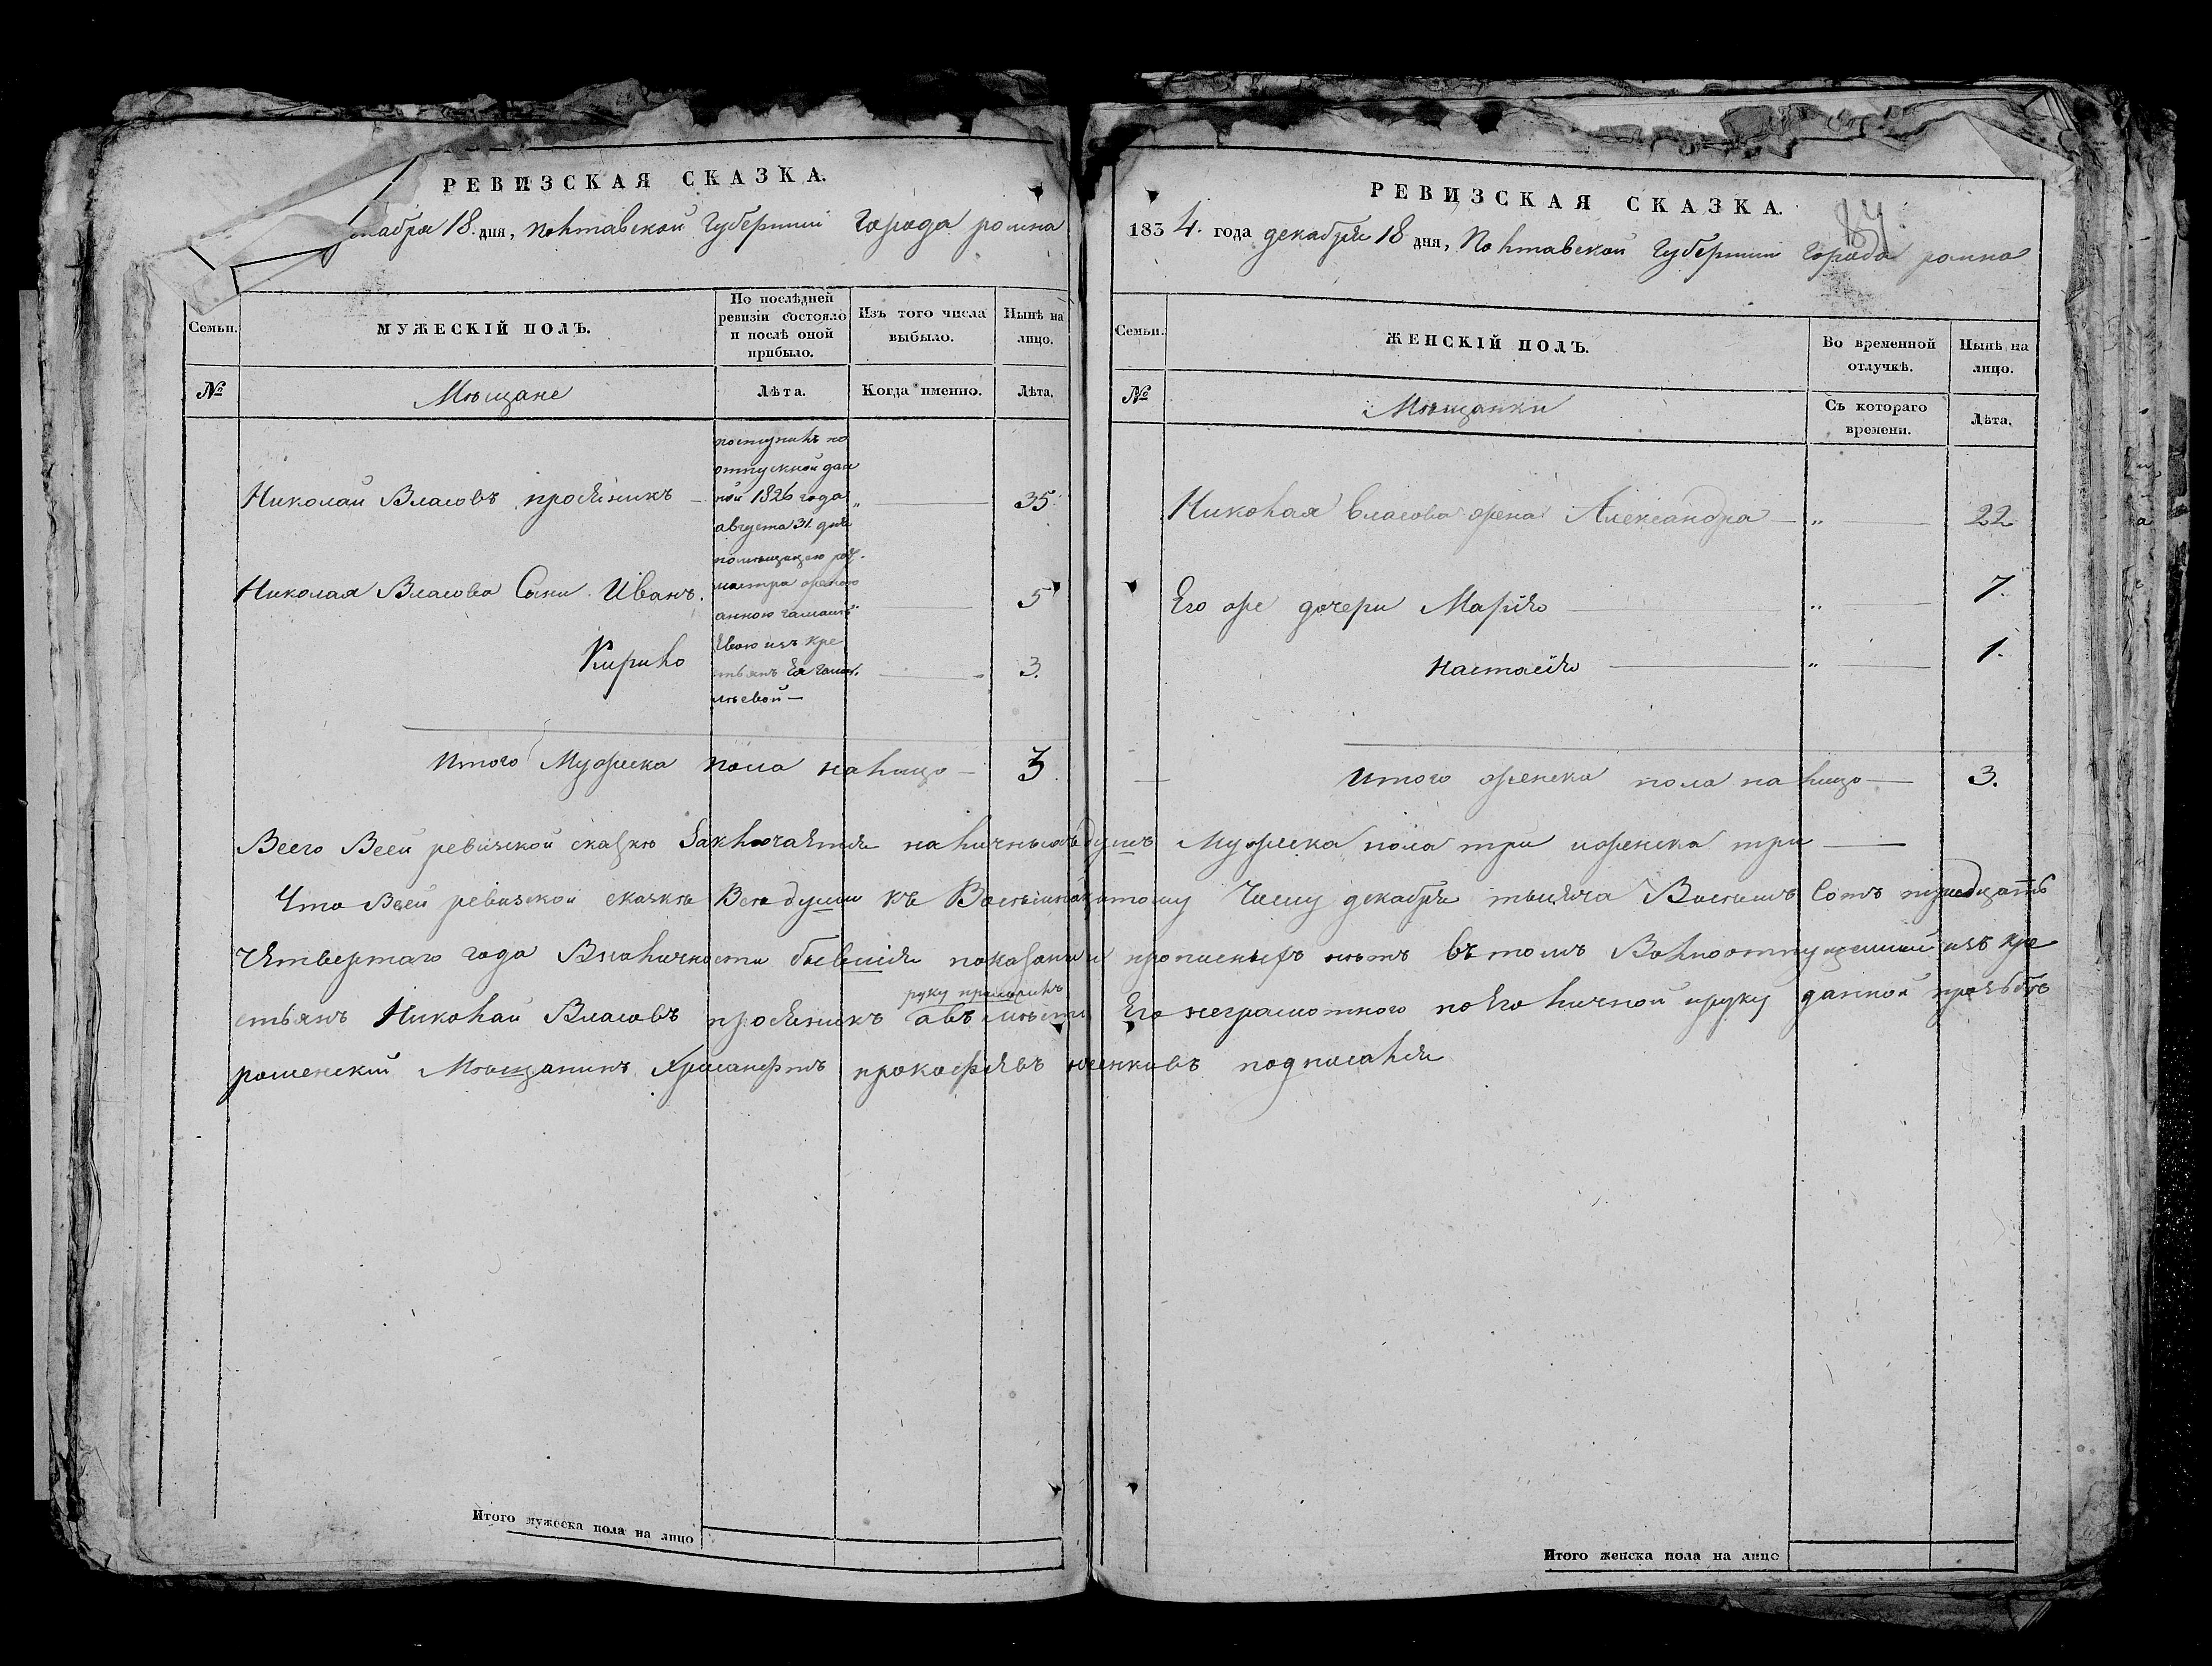 РЕВИЗСКАЯ СКАЗКА.
декабря 18. дня, Полтавской Губернии Города ромна
Семьи.
МУЖЕСКІЙ ПОЛЪ.
По послѣдней ревизіи состояло и послѣ оной прибыло.
Изъ того числа выбыло.
Нынѣ на лицо.
№
Мѣщане
Лѣта.
Когда именно.
Лѣта.
поступилъ по
отпускной дан
Николай Власовъ просяникъ — ной 1826 года „ — 35
августа 31. дня
помещицею
Николая Власова Сыни Иванъ. — 5
анною
Кирило — 3.
евою изъ кре
стьянъ Ея
Итого Мужеска пола налицо — 3.
РЕВИЗСКАЯ СКАЗКА.
84
183 4. года декабря 18 дня, Полтавской Губернии Города ромна
Семьи.
ЖЕНСКІЙ ПОЛЪ.
Во временной отлучкѣ.
Нынѣ на лицо.
№
Мѣщанки
Съ котораго времени.
Лѣта.
Николая Власова жена Александра — „ — 22
Его же дочери Марія — „ — 7.
Настасія — „ — 1.
Итого женска пола налицо — 3.
Всего Всеи ревизской сказкѣ Заключается наличныхъ душъ Мужеска пола три иженска три —
Что Всеи ревизской сказкѣ Всѣ души къ Восемнацатому Числу декабря тысяча Восемъ Сотъ тридцать
Четвертаго года Вналичности бывшія показаны и прописныхъ нѣтъ въ томъ Вольноотпущенный изъ кре
стьянъ Николай Власовъ просяникъ руку приложилъ авъместо Его неграмотного поЕго личной ируку данной прозьбѣ
роменскій Мѣщанинъ Хрисанфъ прокофіевъ подписался
Итого мужеска пола на лицо
Итого женска пола на лицо